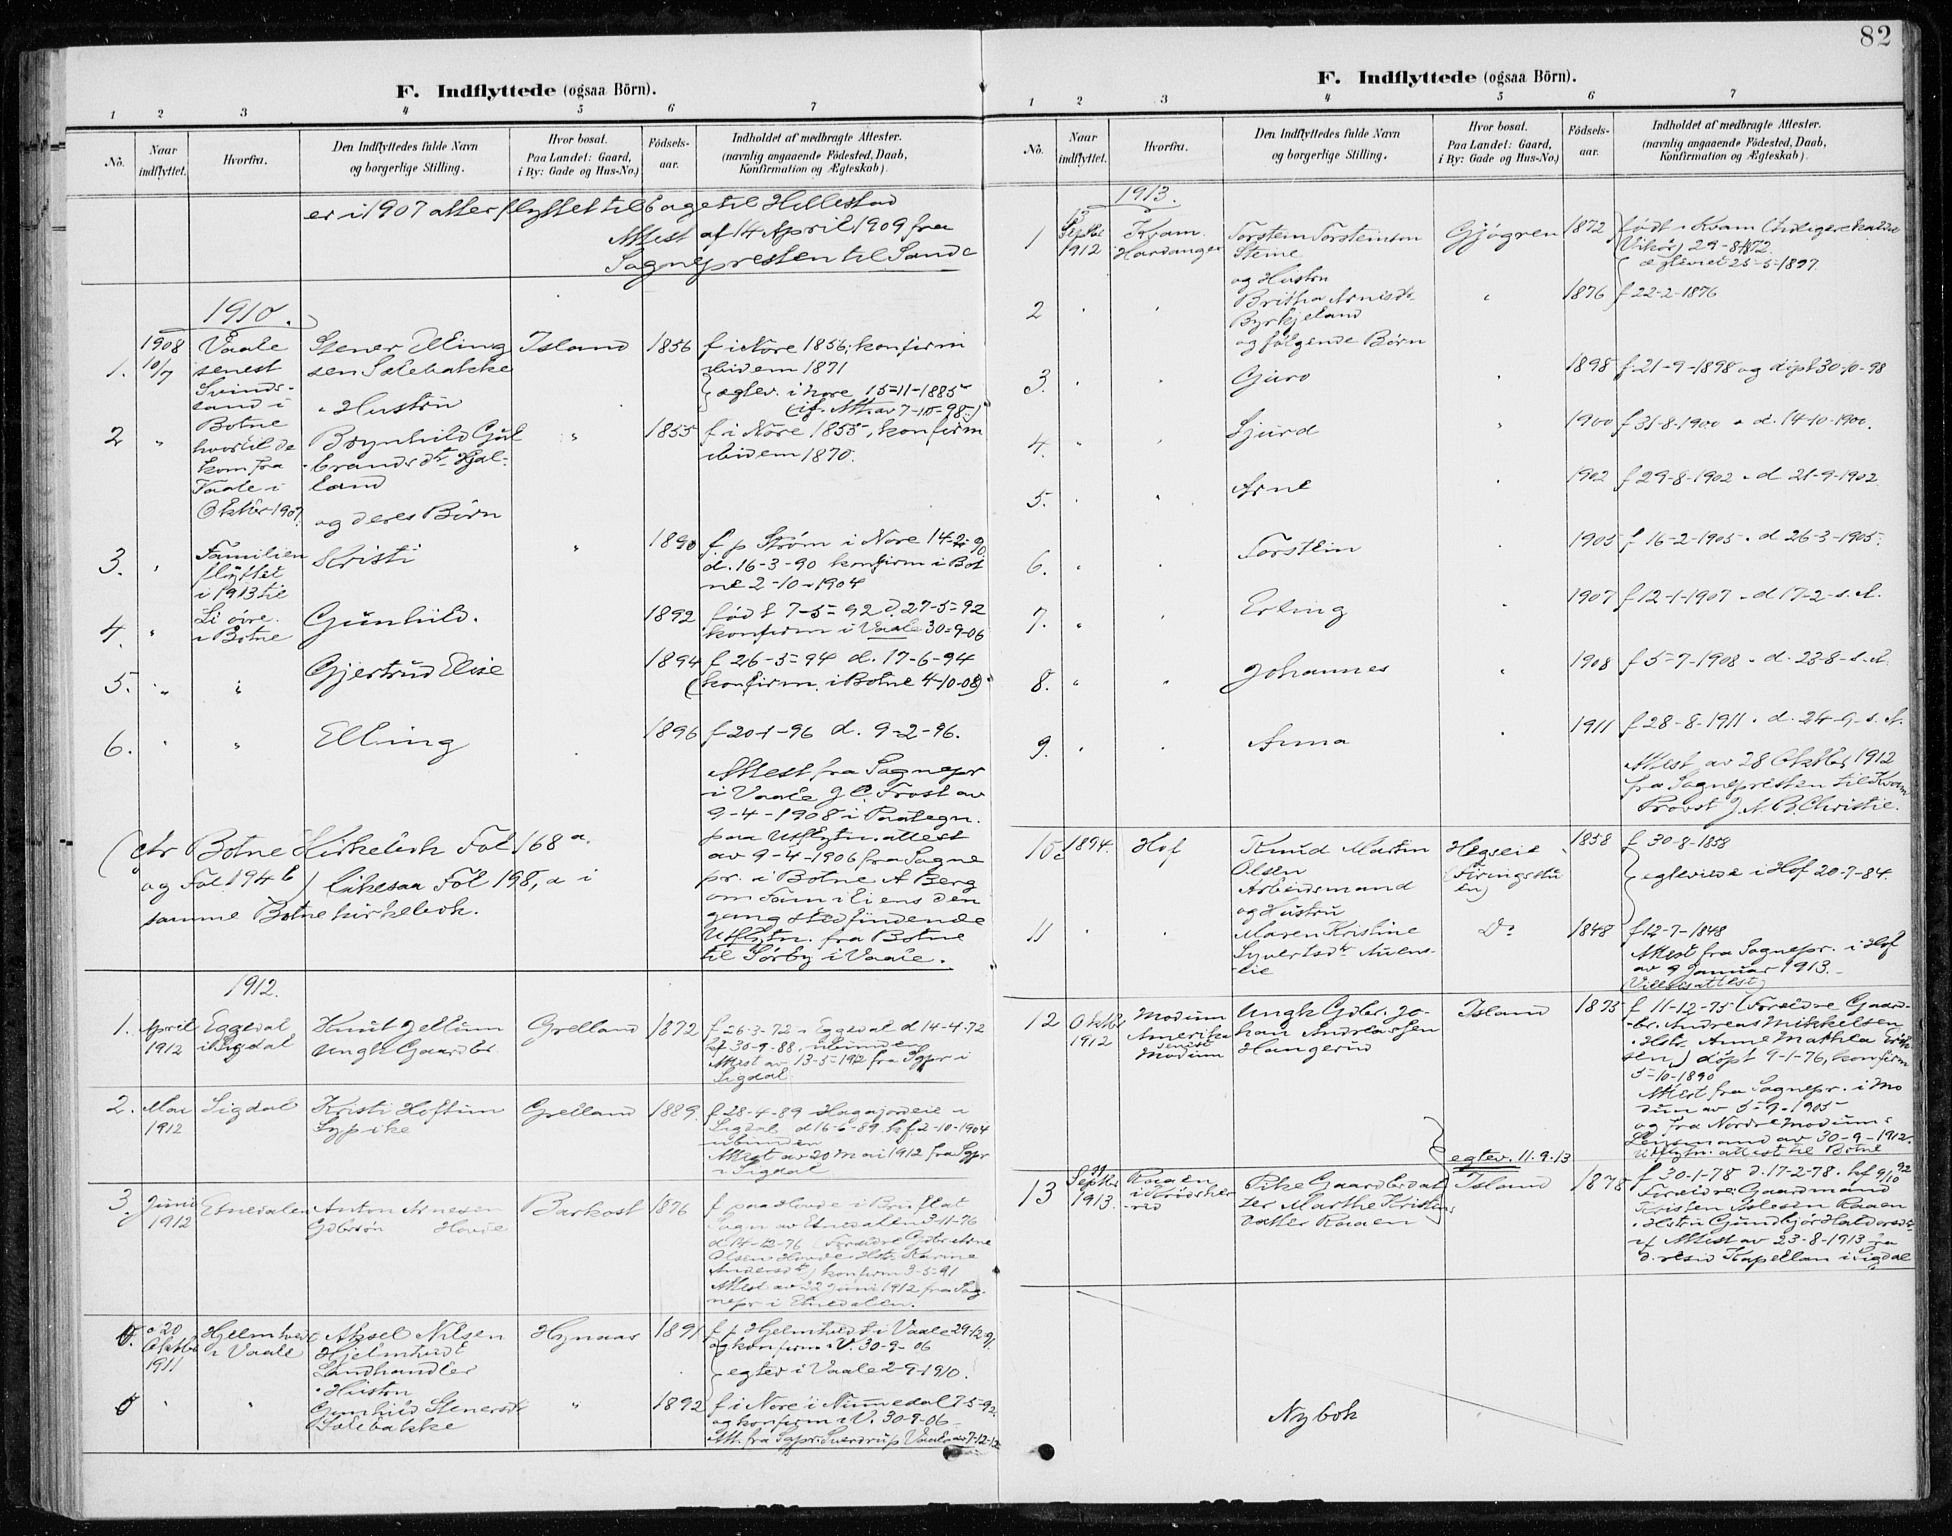 82
F. Indflyttede (ogsaa Börn).
1 2 3 4 5 6 7
Nö.
Naar indflyttet.
Hvorfra.
Den Indflyttedes fulde Navn
og borgerlige Stilling.
Hvor bosat.
Paa Landet: Gaard,
i By: Gade og Hus-No.)
Födsels-
aar.
Indholdet af medbragte Attester.
(navnlig angaaende Födested, Daab,
Konfirmation og Ægteskab).
er i 1907 atter flyttet tilbage til Hillestad
Attest af 14 April 1909 fra
Sognepresten til Sande
1910.
1. 1908 10/7
Vaale
senest
Svinds-
land i
Botne
hvortil de
kom fra
Vaale i
Oktbr 1907.
Stener Elling
sen Sælebakke
" Hustru
Island
1856
f i Nore 1856; konfirm
ibidem 1871
ægtev. i Nore 15-11-1885
(if. Att. av 7-10-98.)
2 "
Brynhild Gul
brandsdtr
land
og deres Børn
"
1855
f i Nore 1855, konfirm
ibidem 1870.
3. "
Familien
flyttet
i 1913 til
Li øvre
i Botne
Kristi
"
1890
f. p Strøm i Nore 14-2-90
d. 16-3-90 konfirm i Bot
ne 2-10-1904
4. "
Gunhild.
1892
født 7-5-92 d. 27-5-92
konfirm i Vaale 30-9-06
5. " "
Gjertrud Elise
1894
f 26-5-94 d. 17-6-94
(konfirm. i Botne 4-10-08)
6. " "
Elling
1896
f 20-1-96 d. 9-2-96.
Attest fra Sognepr
i Vaale J C. Frost av
9-4-1908 i Paategn.
paa Utflytn. attest
av 9-4-1906 fra Sogne
pr. i Botne A Berg
om Familiens den
gang stedfindende
Utflytn. fra Botne
til Sørby i Vaale.
Botne Kirkebok Fol 168 a.
og Fol 194 b) likesaa Fol 198, a i
samme Botne kirkebok.
1912.
1. April
1912
Eggedal
i Sigdal
Knut Jellum
Ungk Gaardbr.
Grelland
1872
f. 26-3-72 i Eggedal d 14-4-72
kf 30-9-88, ubunden
Attest av 13-5-1912 fra Sgpr i
Sigdal.
2. Mai
1912
Sigdal
Kristi Hoftun
Sypike
Grelland
1889.
f 28-4-89 Hagajordeie i
Sigdal d 16-6-89. kf 2-10-1904
ubunden
Attest av 20 Mai 1912 fra Sgpr
i Sigdal
3. Juni
1912
Etnedalen
Anton Arnesen
Gdbrsøn Hovde
Barkost
1876
f paa Hovde i Bruflat
Sogn av Etnedalen 3-11-76
d 14-12-76 (Foreldre Gdbr Arne
Olsen Hovde Hstr Karine
Andersdtr) konfirm 3-5-91
Attest av 22 Juni 1912 fra Sog.
nepr i Etnedalen.
20
Oktbr
1911
Hjelmtvedt
i Vaale
Aksel Nilsen
Hjelmtvedt
Landhandler
" Hustru
Hynaas
1891
f p Hjelmtvedt i Vaale 29-12-91
og konfirm i V. 30-9-06
egtev i Vaale 2-9-1910.
" "
Gunhild Stenersdtr
Sælebakke
"
1892
f i Nore i Numedal 7-5-92.
og konfirm i V. 30-9-06
Att. fra Sgpr. Sverdrup Vaale av 7-12-12
F. Indflyttede (ogsaa Börn).
1 2 3 4 5 6 7
Nö.
Naar
indflyttet.
Hvorfra.
Den Indflyttedes fulde Navn
og borgerlige Stilling.
Hvor bosat.
Paa Landet: Gaard,
i By: Gade og Hus-No.)
Födsels-
aar.
Indholdet af medbragte Attester.
(navnlig angaaende Födested, Daab,
Konfirmation og Ægteskab).
1913.
1 Septbr
1912
Kvam
Hardanger
Torstein Torsteinson
Steine
og Hustru
Gjøgren
1872
født i Kvam (tidligere kaldet
Vikør) 29-8-1872
ægteviet 25-5-1897.
2 " "
Britha Arnisdtr
Byrkjeland
og følgende Børn
"
1876
f 22-2-1876
3. " "
Guro
"
1898
f. 21-9-1898 og døpt 30-10-98
4. " "
Sjurd
"
1900
f 31-8-1900 " d. 14-10-1900.
5. " "
Arne
"
1902
f 29-8-1902 " d 21-9-1902
6. " "
Torstein
"
1905
f 16-2-1905 " d 26-3-1905.
7. " "
Erling
"
1907
f 12-1-1907 " d 17-2-s. A.
8. " "
Johannes
"
1908
f 5-7-1908 " d. 23-8-s. A.
9. " "
Anna
"
1911
f 28-8-1911 " d. 24-9-s. A.
Attest av 28 Oktbr 1912
fra Sognepresten til Kvam
Provst J. A. B. Christie.
10. 1894.
Hof
Knud Martin
Olsen
Arbeidsmand
og Hustru
Hegseie
1858
f 30-8-1858
egteviede i Hof 20-7-84.
11 " "
Maren Kristine
Syvertsdtr Auens-
eie
Do
1848
f 12-7-1848
Attest fra Sognepr. i Hof
av 9 Januar 1913.
(Vielsesattest)
12 Oktbr
1912
Modum
Amerika
senest
Modum
Ungk Gdbr. Jo-
han Andreassen
Haugerud
Island
1875
f 11-12-75 (Foreldre Gaard-
br. Andreas Mikkelsen
" Hstr. Anne Mathea Erik
sen) døpt 9-1-76, konfirm
5-10-1890
Attest fra Sognepr. i Mo
dum av 5-9-1905
og fra Nordre Modums
Lensmand av 30-9-1912.
Utflytn. attest til Botne
egtev. 11.9.13
13 Septbr
1913.
Raaen
i Krødshe
red
Pike Gaardbrdat
ter Marthe Kristens
datter Raaen
Island
1878
f 30-1-78 d. 17-2-78. kf 9/10 92
Foreldre: Gaardmand
Kristen Aslesen Raaen
" Hstr Gundbjør Haldorsdtr
if Attest av 23-8-1913 fra
d. resid Kapellan i Sigdal
Ny bok